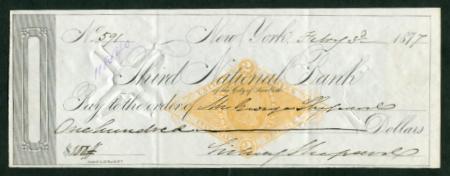 No. 591 New York, Feby 3d 1877
Third National Bank
of the City of New York
Pay to the order of George Shepard
One hundred Dollars
$100
Sidney Shepard